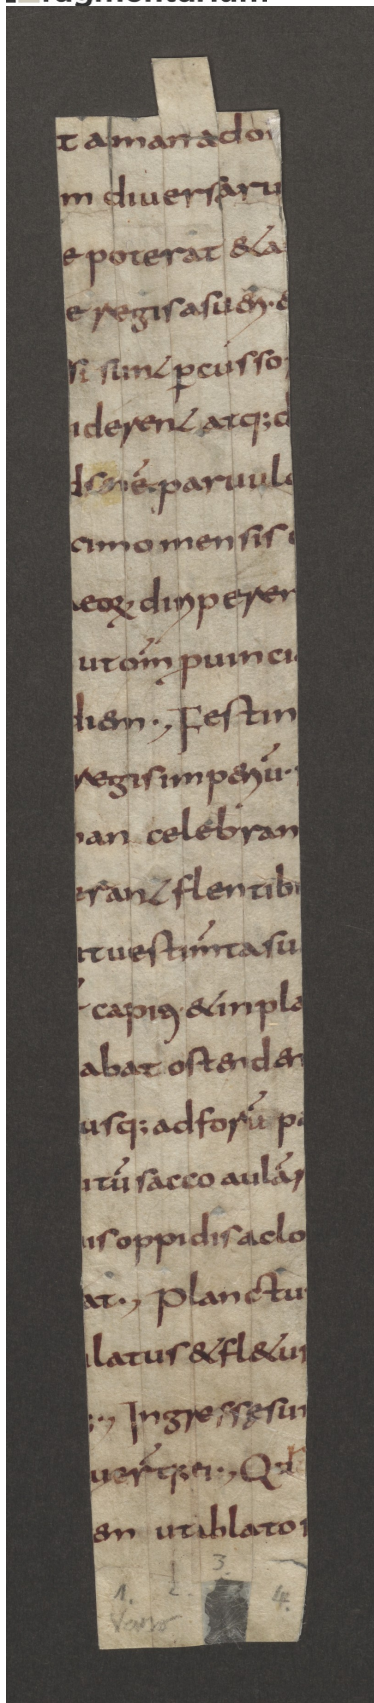 t a mari ad o
m diuersaru
e poterat & a
e regis asuer. &
si sunt p̄cussor
iderent atq; d
dēnē. paruulo
cimo mensis
eoꝝ diriperen
ut oīm puinci
diem ·, Festin
regis imperiū.
an celebran
erant flentib
it uestim̄ta su
capiti & in pla
abat ostenden
usq; ad forū pa
itū sacco aulā r
is oppidis ac lo
at ·, Planctu
ulatus & fl&us
·, Ingressę sun
uer̄tq; ei ·, Qd
em ut iblato
1. 2. 3. 4.
Verso